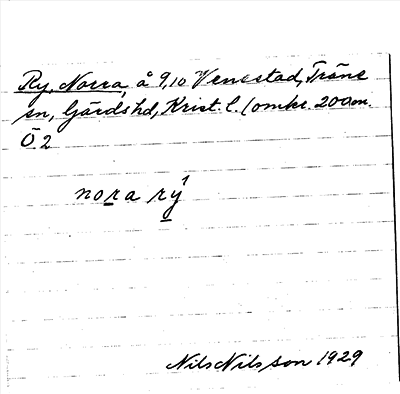 Ry, Norra, å 9,10 Venestad, Träne
sn, Gärds hd, Krist. l. (omkr. 200m.
Ö 2
nora rý
Nils Nilsson 1929